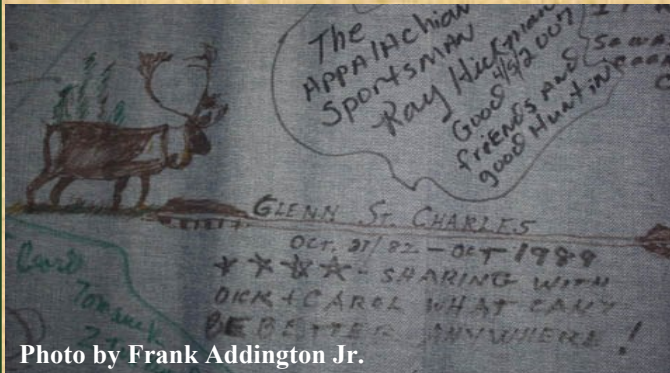 The
APPALACHIAN
SPORTSMAN
Ray Hickman
Good 4/5/2007
friends and
good Huntin
GLENN ST. CHARLES
OCT. 27/82 - OCT 1988
- SHARING WITH
DICK + CAROL WHAT CAN'T
BE BETTER ANYWHERE!
Photo by Frank Addington Jr.